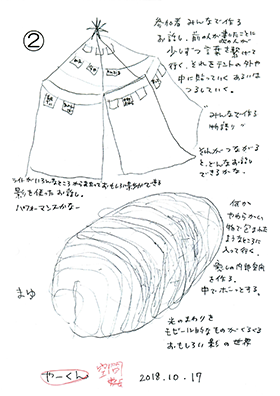 ②
参加者 みんなで作る
お話し、前の人が書いたことに
次の人が
少しずつ言葉を繋げて
行く、それをテントの外や
中に貼っていく あるいは
つるしていく。
"みんなで作る
物語り"
それがつながる
と、どんなお話し
ができるかな。
ライトがいろんなところから当たっておもしろい影ができる
影を使ったお話し
パフォーマンスかなー
まゆ
何か
やわらかい
物で包まれた
ようなところに
入って行く。
癒しの内部空間
を作る。
中でボーッとする。
光のまわりを
モビール的なものがぐるぐる
おもしろい影の世界
やーくん
空間
2018.10.17